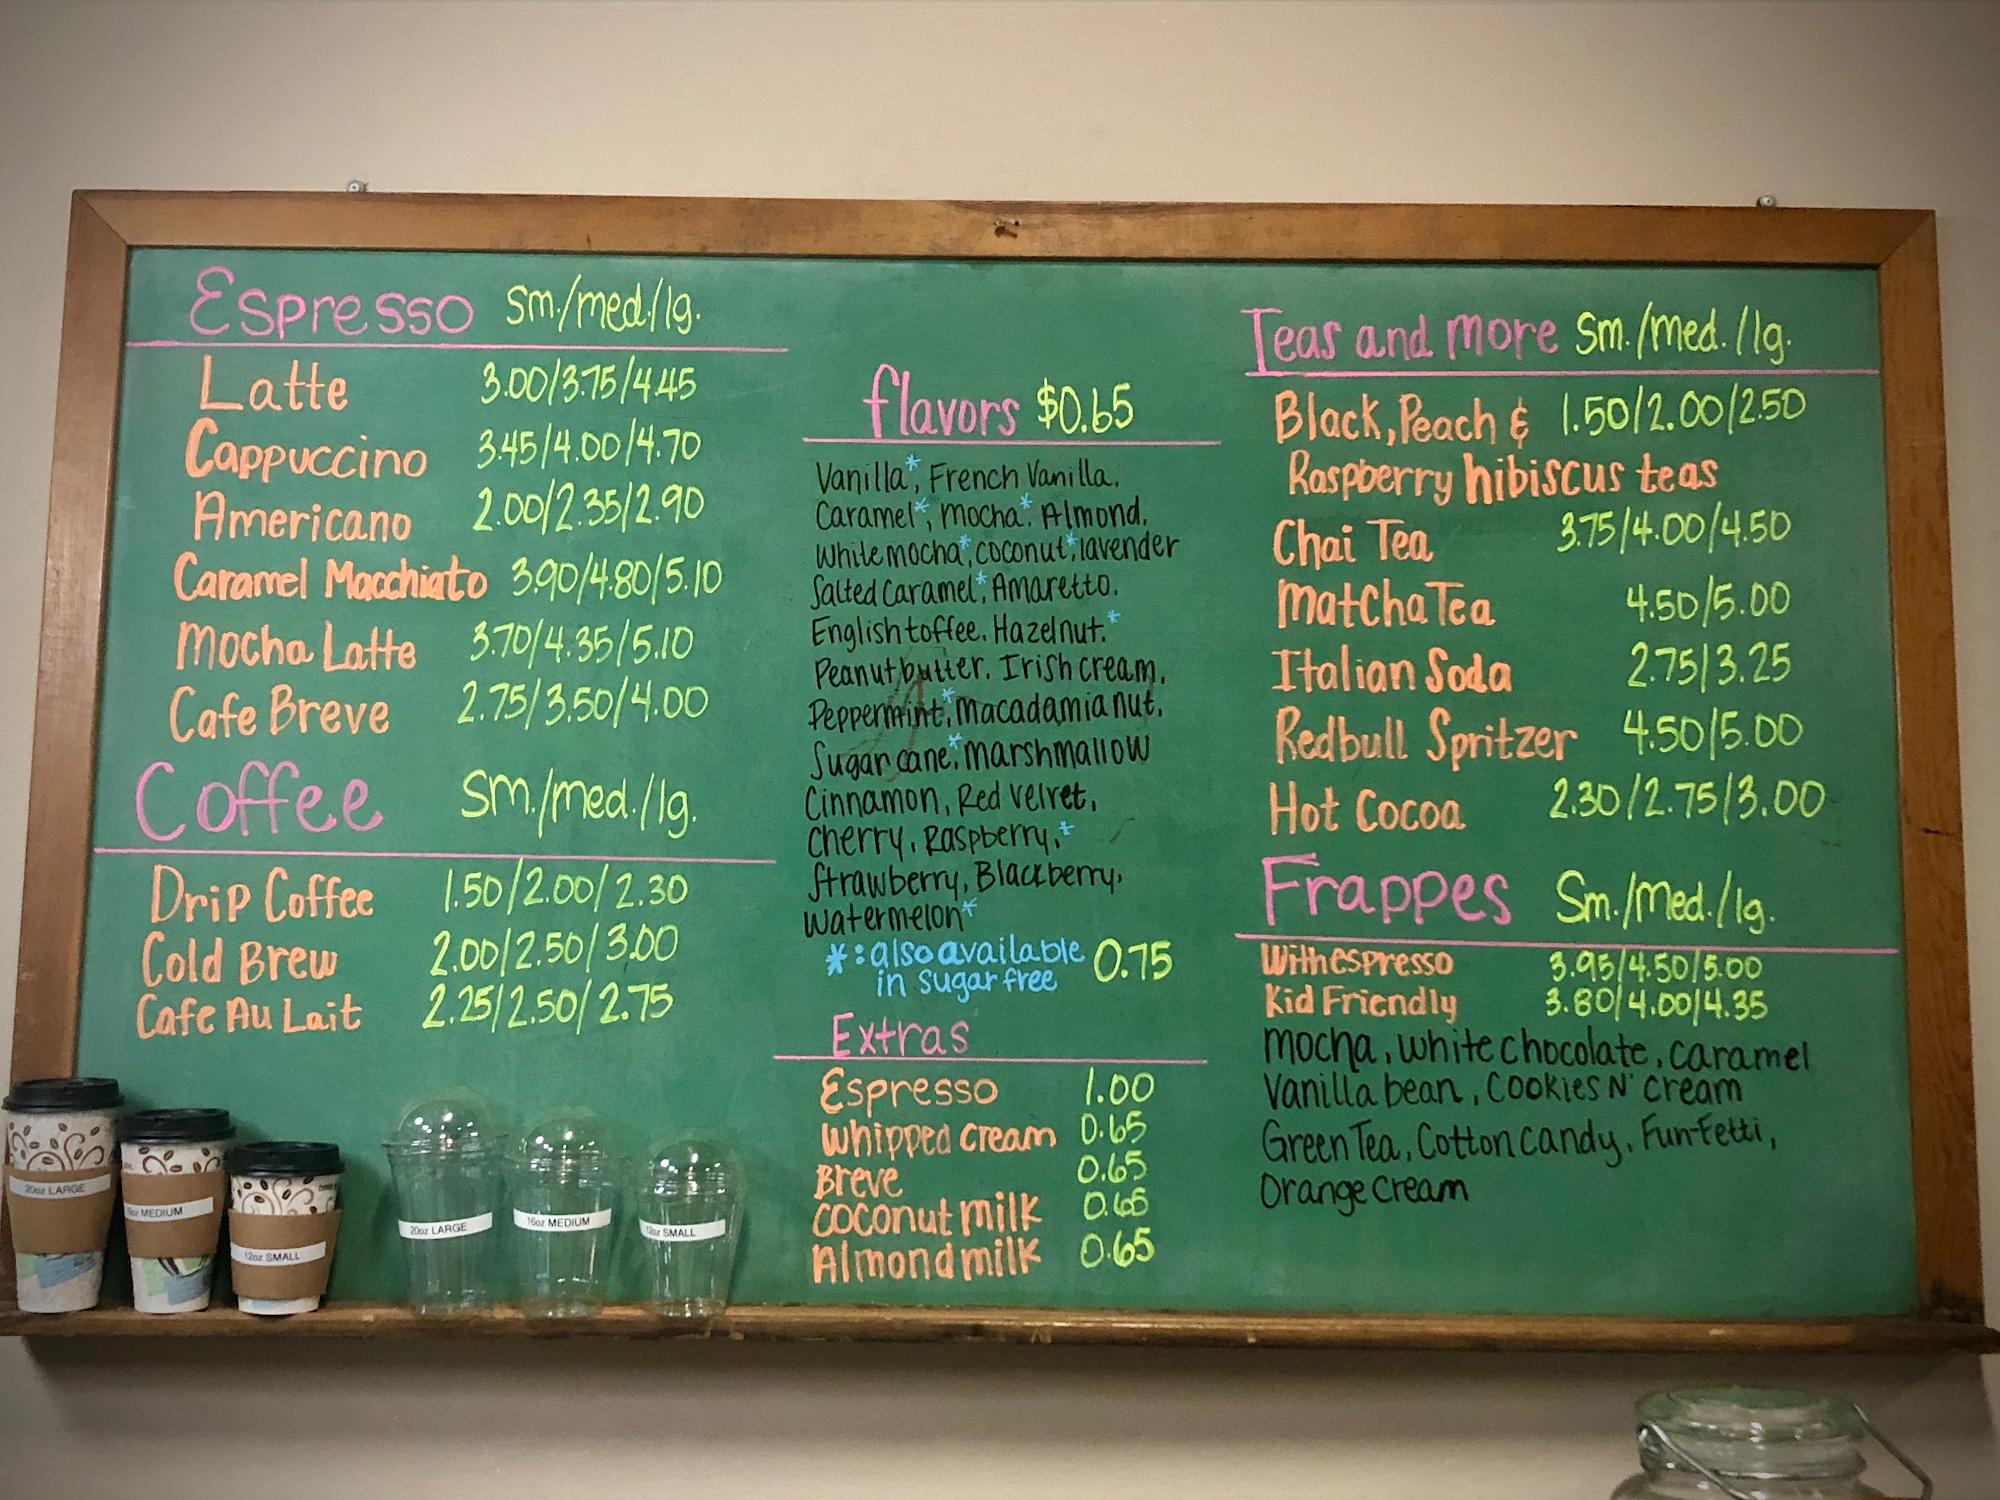 Espresso sm./med./lg.
Latte 3.00/3.75/4.45
Cappuccino 3.45/4.00/4.70
Americano 2.00/2.35/2.90
Caramel Macchiato 3.90/4.80/5.10
Mocha Latte 3.70/4.35/5.10
Cafe Breve 2.75/3.50/4.00
Coffee Sm./med./lg.
Drip Coffee 1.50/2.00/2.30
Cold Brew 2.00/2.50/3.00
Cafe Au Lait 2.25/2.50/2.75
20oz LARGE
MEDIUM
12oz SMALL
20oz LARGE
16oz MEDIUM
12oz SMALL
flavors $0.65
Vanilla*, French Vanilla,
Caramel*, Mocha*, Almond,
White mocha*, coconut*, lavender
Salted Caramel*, Amaretto,
English toffee, Hazelnut,*
Peanut butter, Irish cream,
Peppermint*, Macadamia nut,
Sugar cane*, Marshmallow
Cinnamon, Red velvet,
Cherry, Raspberry,*
Strawberry, Blackberry,
Watermelon*
*: also available 0.75
in sugar free
Extras
Espresso 1.00
Whipped cream 0.65
Breve 0.65
Coconut milk 0.65
Almond milk 0.65
Teas and more Sm./med./lg.
Black, Peach & 1.50/2.00/2.50
Raspberry hibiscus teas
Chai Tea 3.75/4.00/4.50
Matcha Tea 4.50/5.00
Italian Soda 2.75/3.25
Redbull Spritzer 4.50/5.00
Hot Cocoa 2.30/2.75/3.00
Frappes Sm./Med./lg.
With espresso 3.95/4.50/5.00
Kid Friendly 3.80/4.00/4.35
Mocha, White chocolate, Caramel
Vanilla bean, Cookies N' Cream
Green Tea, Cotton Candy, Fun-Fetti,
Orange Cream